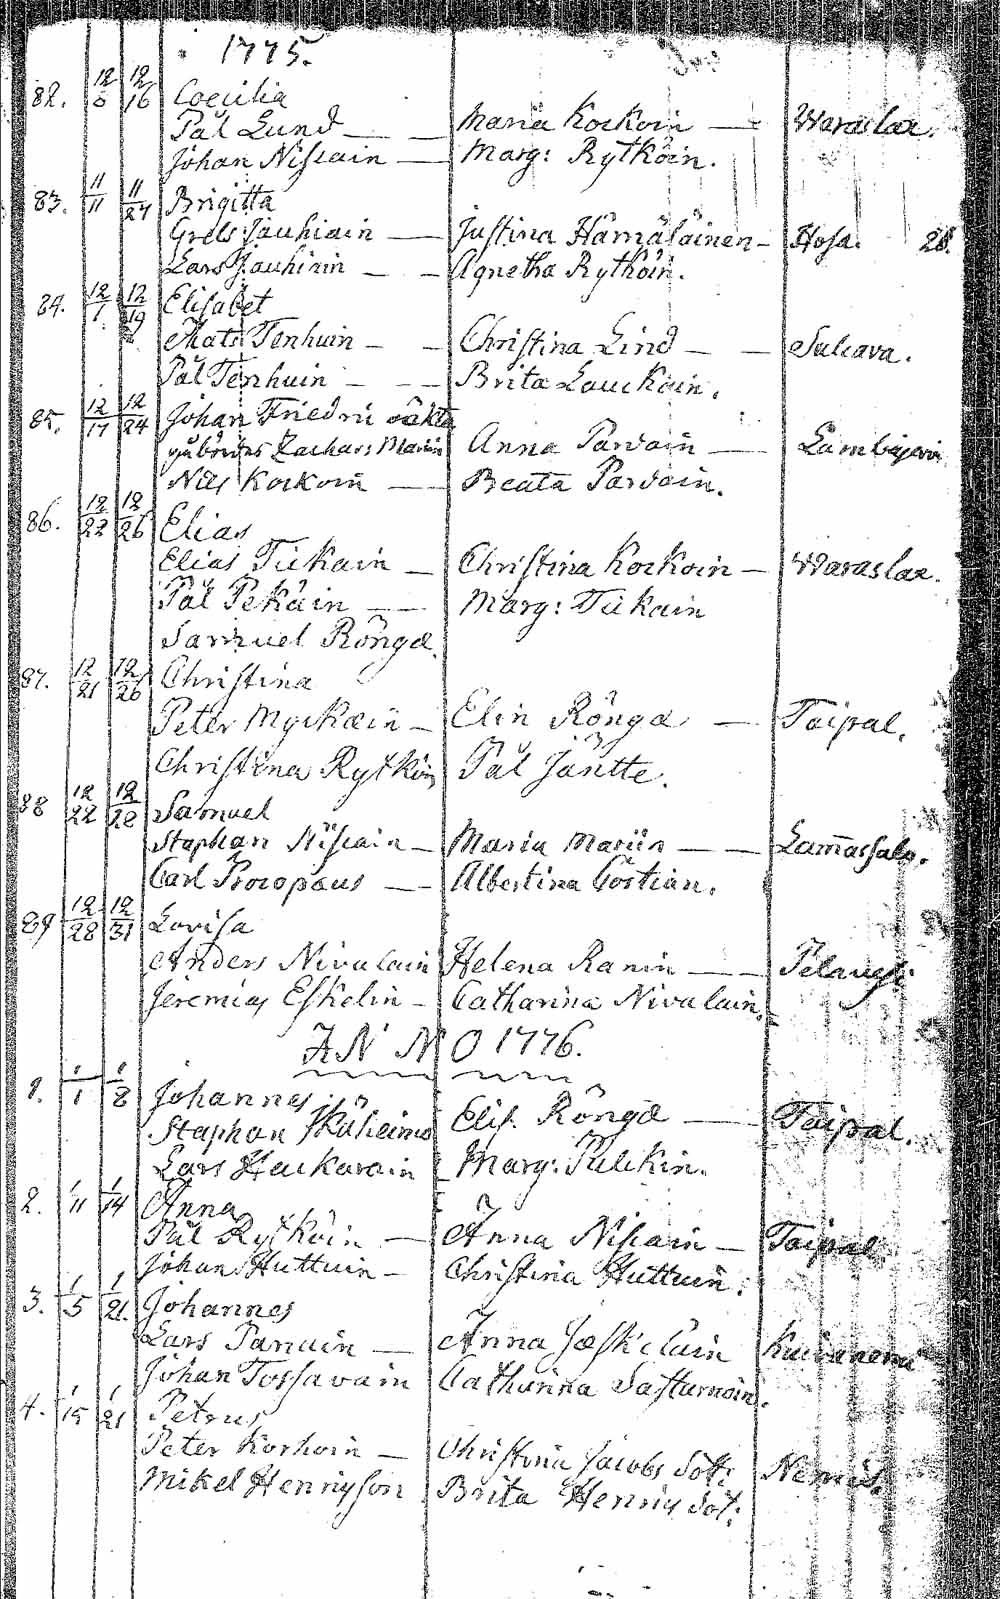 1775.
82. 12/8 12/16 Coecilia
Pål Lund — — Maria Kockoin — Waraslax.
Johan Niscain — Marg: Rytköin.
83. 11/11 11/27 Brigitta
Grels Jauhiain — Justina Hämäläinen - Hosa. 28.
Lars Jauhiain — - Agnetha Rytköin.
84. 12/1 12/19 Elisabet
Mats Tenhuin - - Christina Lind — — Sukava.
Pål Tenhuin - - - Brita Lauckain.
85. 12/17 12/24 Johan Friedric oäkta
Zachars Mariin Anna Parvain —
Nils Kockoin — Beata Parvain.
86. 12/22 12/26 Elias
Elias Tickain — Christina Kockoin — Waraslax.
Pål Pekäin — Marg: Tickain
Samuel Röngæ.
87. 12/21 12/26 Christina
Peter Myckæin - Elin Röngæ — Taipal.
Christina Rytköin Pål Jäntte.
88 12/22 12/28 Samuel
Staphan Niscain - Maria Mariin - - Lam̄assalo.
Carl Procopæus — Albertina Costian.
89 12/28 12/31 Lovisa
Anders Nivalain Helena Ranin — — Pelavesi
Jeremias Eskelin - Catharina Nivalain.
ANNO 1776.
1. 1/1 1/8 Johannes
Staphan Elis. Röngæ — Taipal.
Lars Hackarain Marg: Pulckin.
2. 1/11 1/14 Anna
Pål Rytköin — Anna Niscain — Taipal
Johan Huttuin - Christina Huttuin.
3. 1/5 1/21. Johannes
Lars Panuin — Anna Jæskeläin Kuivanemi
Johan Tossavain Catharina Sastamoin.
4. 1/15 1/21 Petrus
Peter Korhoin — Christina Jacobs Dot: Nemis.
Mikel Henricson Brita Henrics Dot: